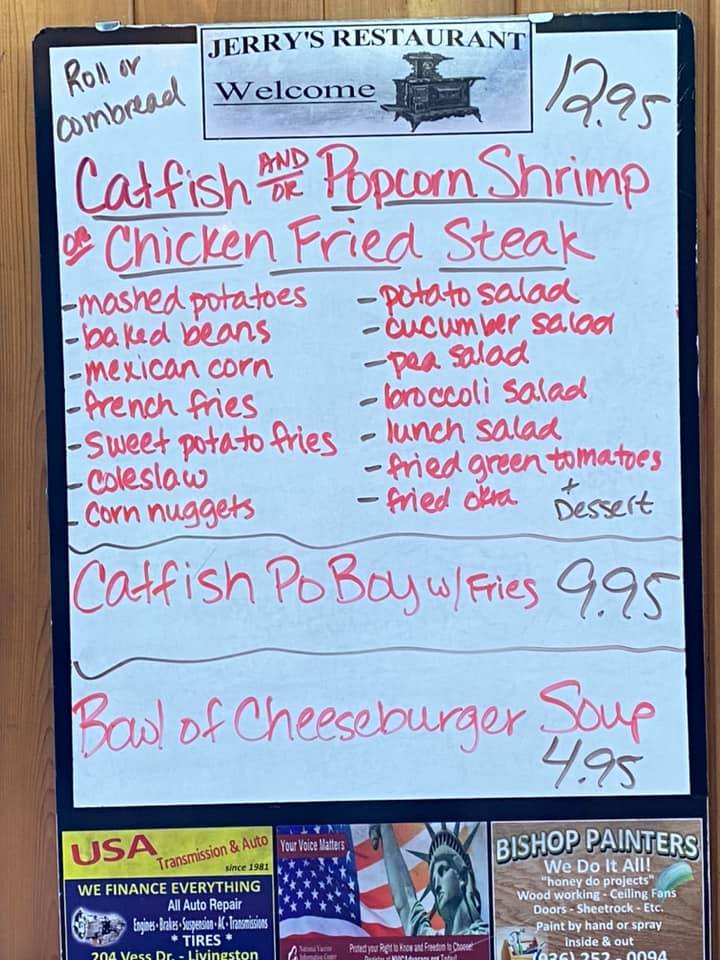 Roll or
cornbread
JERRY'S RESTAURANT
Welcome
12.95
Catfish AND OR Popcorn Shrimp
OR Chicken Fried Steak
- mashed potatoes
- baked beans
- mexican corn
- french fries
- sweet potato fries
- coleslaw
- corn nuggets
- potato salad
- cucumber salad
- pea salad
- broccoli salad
- lunch salad
- fried green tomatoes
- fried okra
+ Dessert
Catfish Po Boy w/ Fries 9.95
Bowl of Cheeseburger Soup
4.95
USA
Transmission & Auto
since 1981
WE FINANCE EVERYTHING
All Auto Repair
Engines - Brakes - Suspension - AC - Transmissions
* TIRES *
204 Vess Dr. - Livingston
Your Voice Matters
National Vaccine
Information Center
Protect your Right to Know and Freedom to Choose!
BISHOP PAINTERS
We Do It All!
"honey do projects"
Wood working - Ceiling Fans
Doors - Sheetrock - Etc.
Paint by hand or spray
Inside & out
(936) 252 - 0094